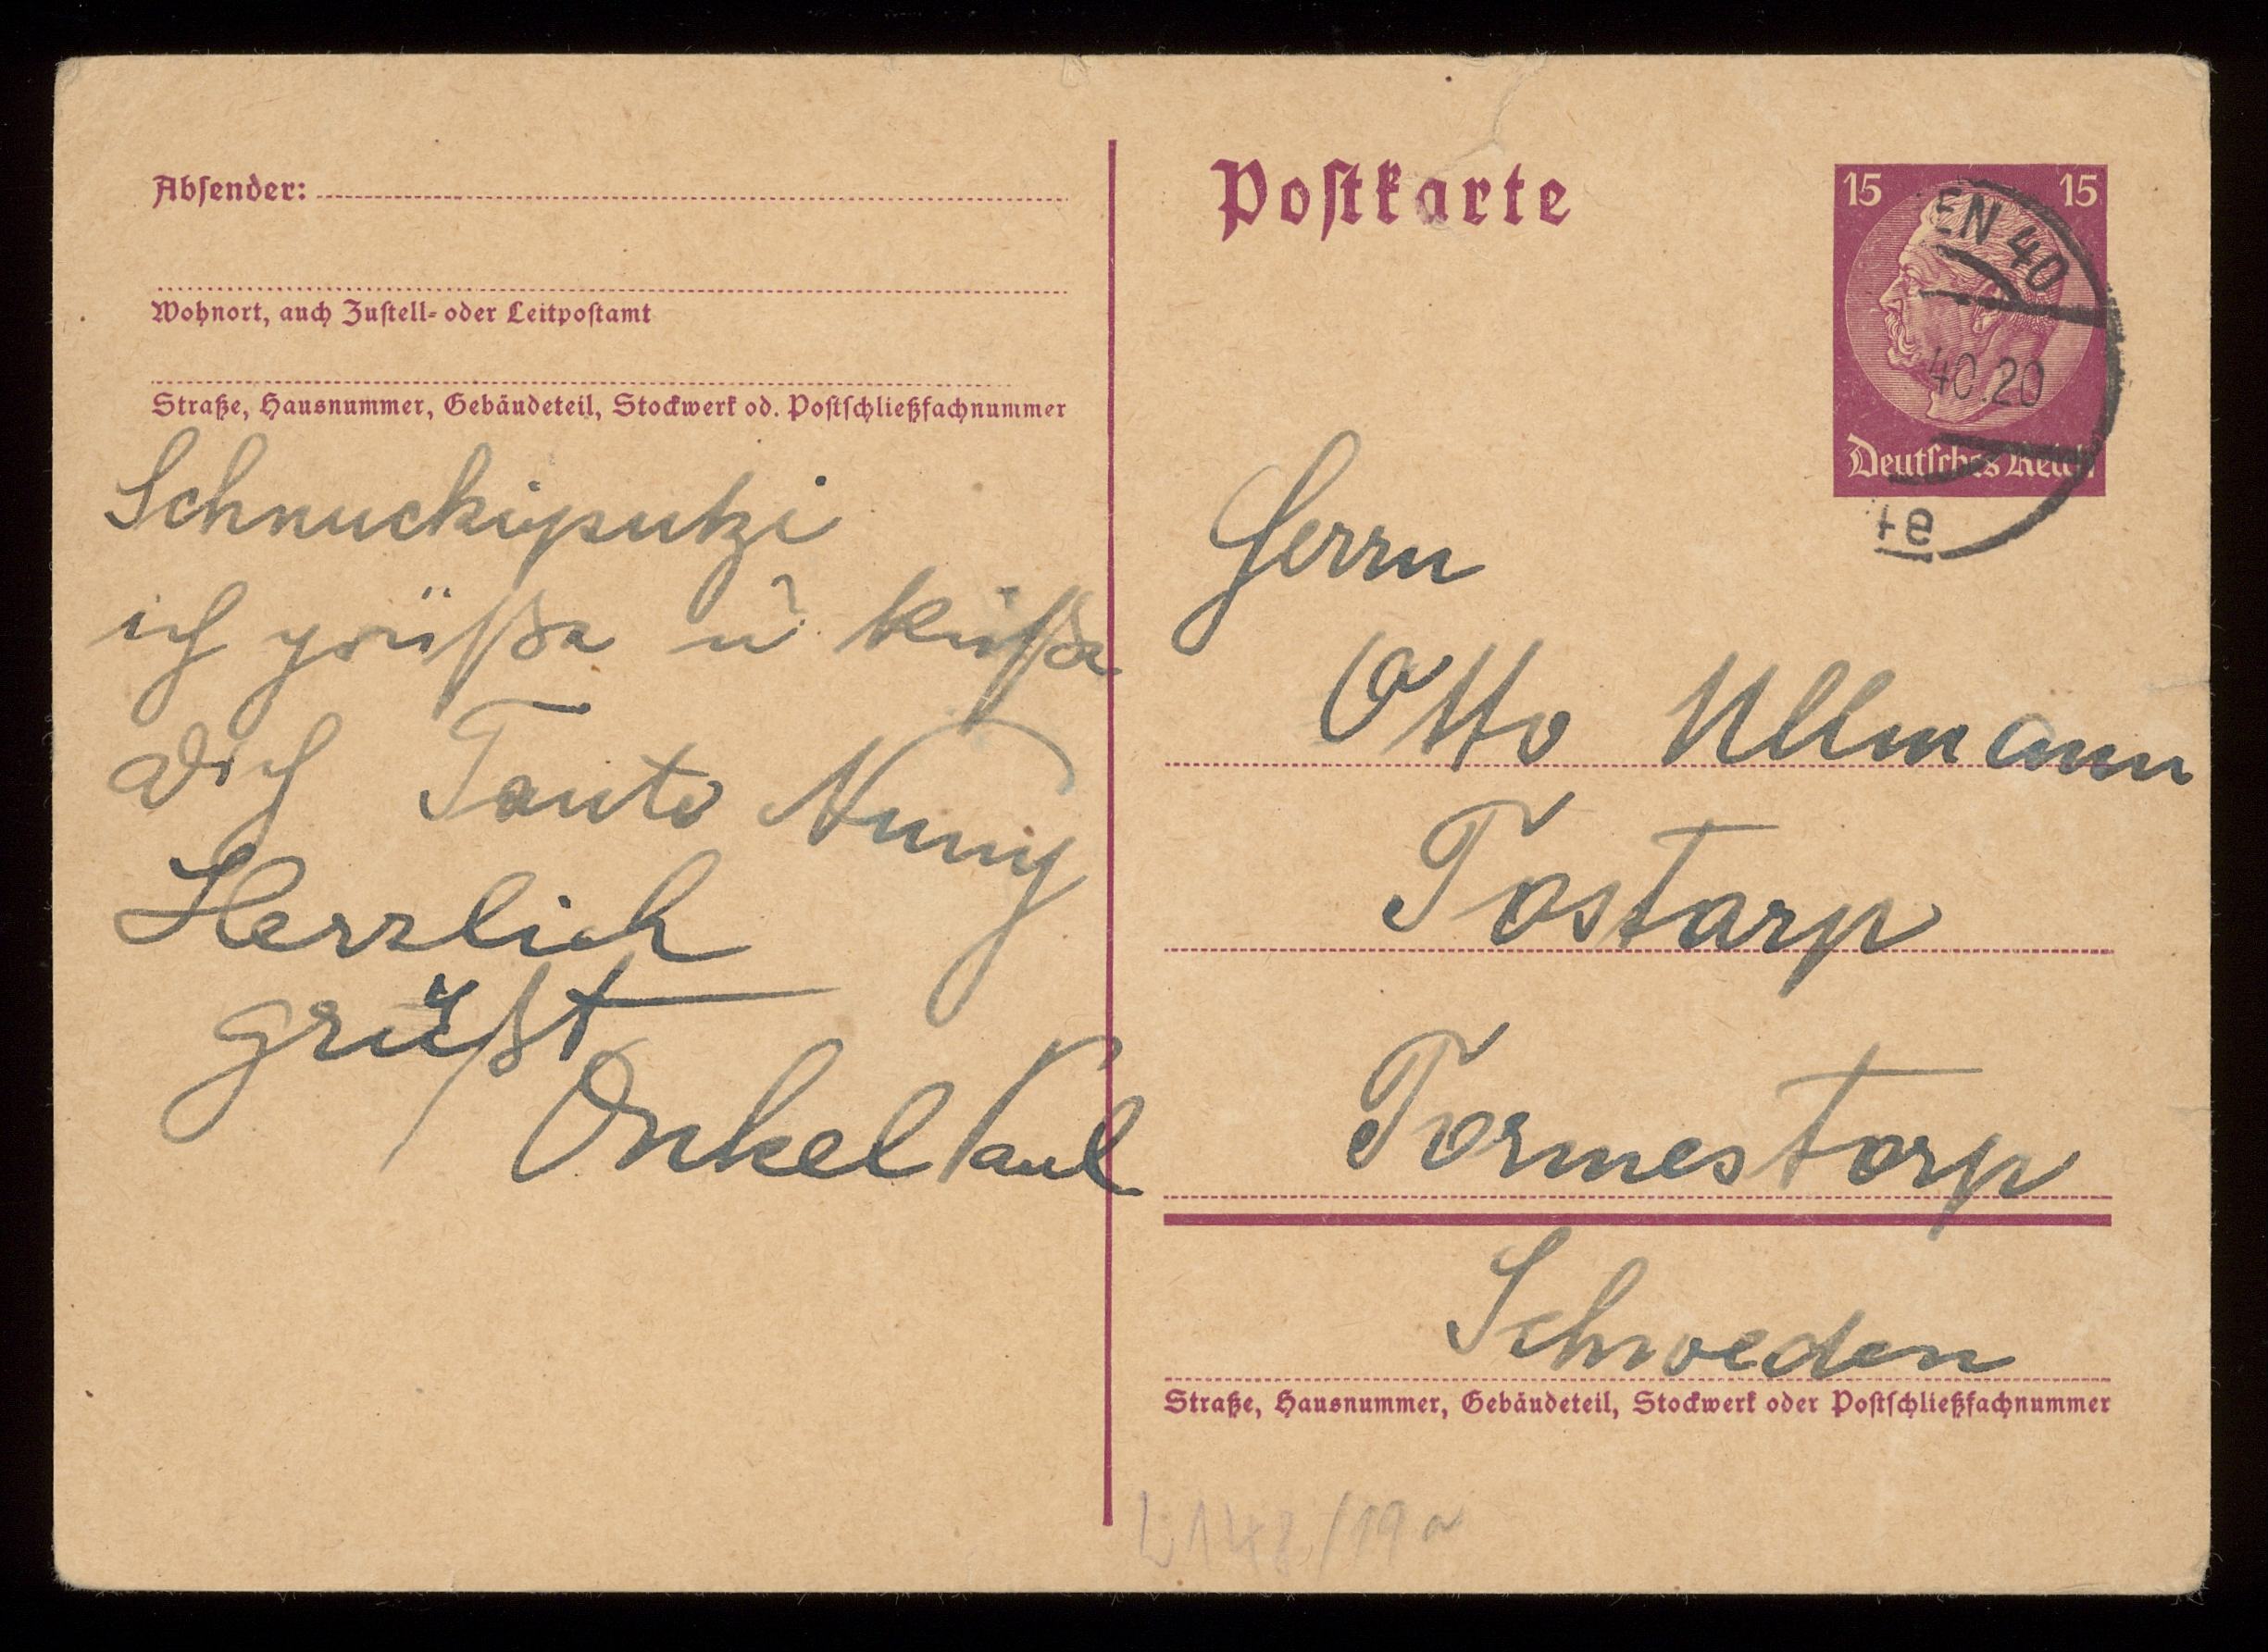 Absender:
Wohnort, auch Zustell- oder Leitpostamt
Straße, Hausnummer, Gebäudeteil, Stockwerk od. Postschließfachnummer
Schnuckiputzi
ich grüße u. küße
Dich Tante Nuny
Herzlich
grüßt
Onkel Paul
Postkarte
15 15
EN 40
40.20
Deutsches Reich
te
Herrn
Otto Ullmann
Tostarp
Tormestorp
Schweden
Straße, Hausnummer, Gebäudeteil, Stockwerk oder Postschließfachnummer
L148/19a